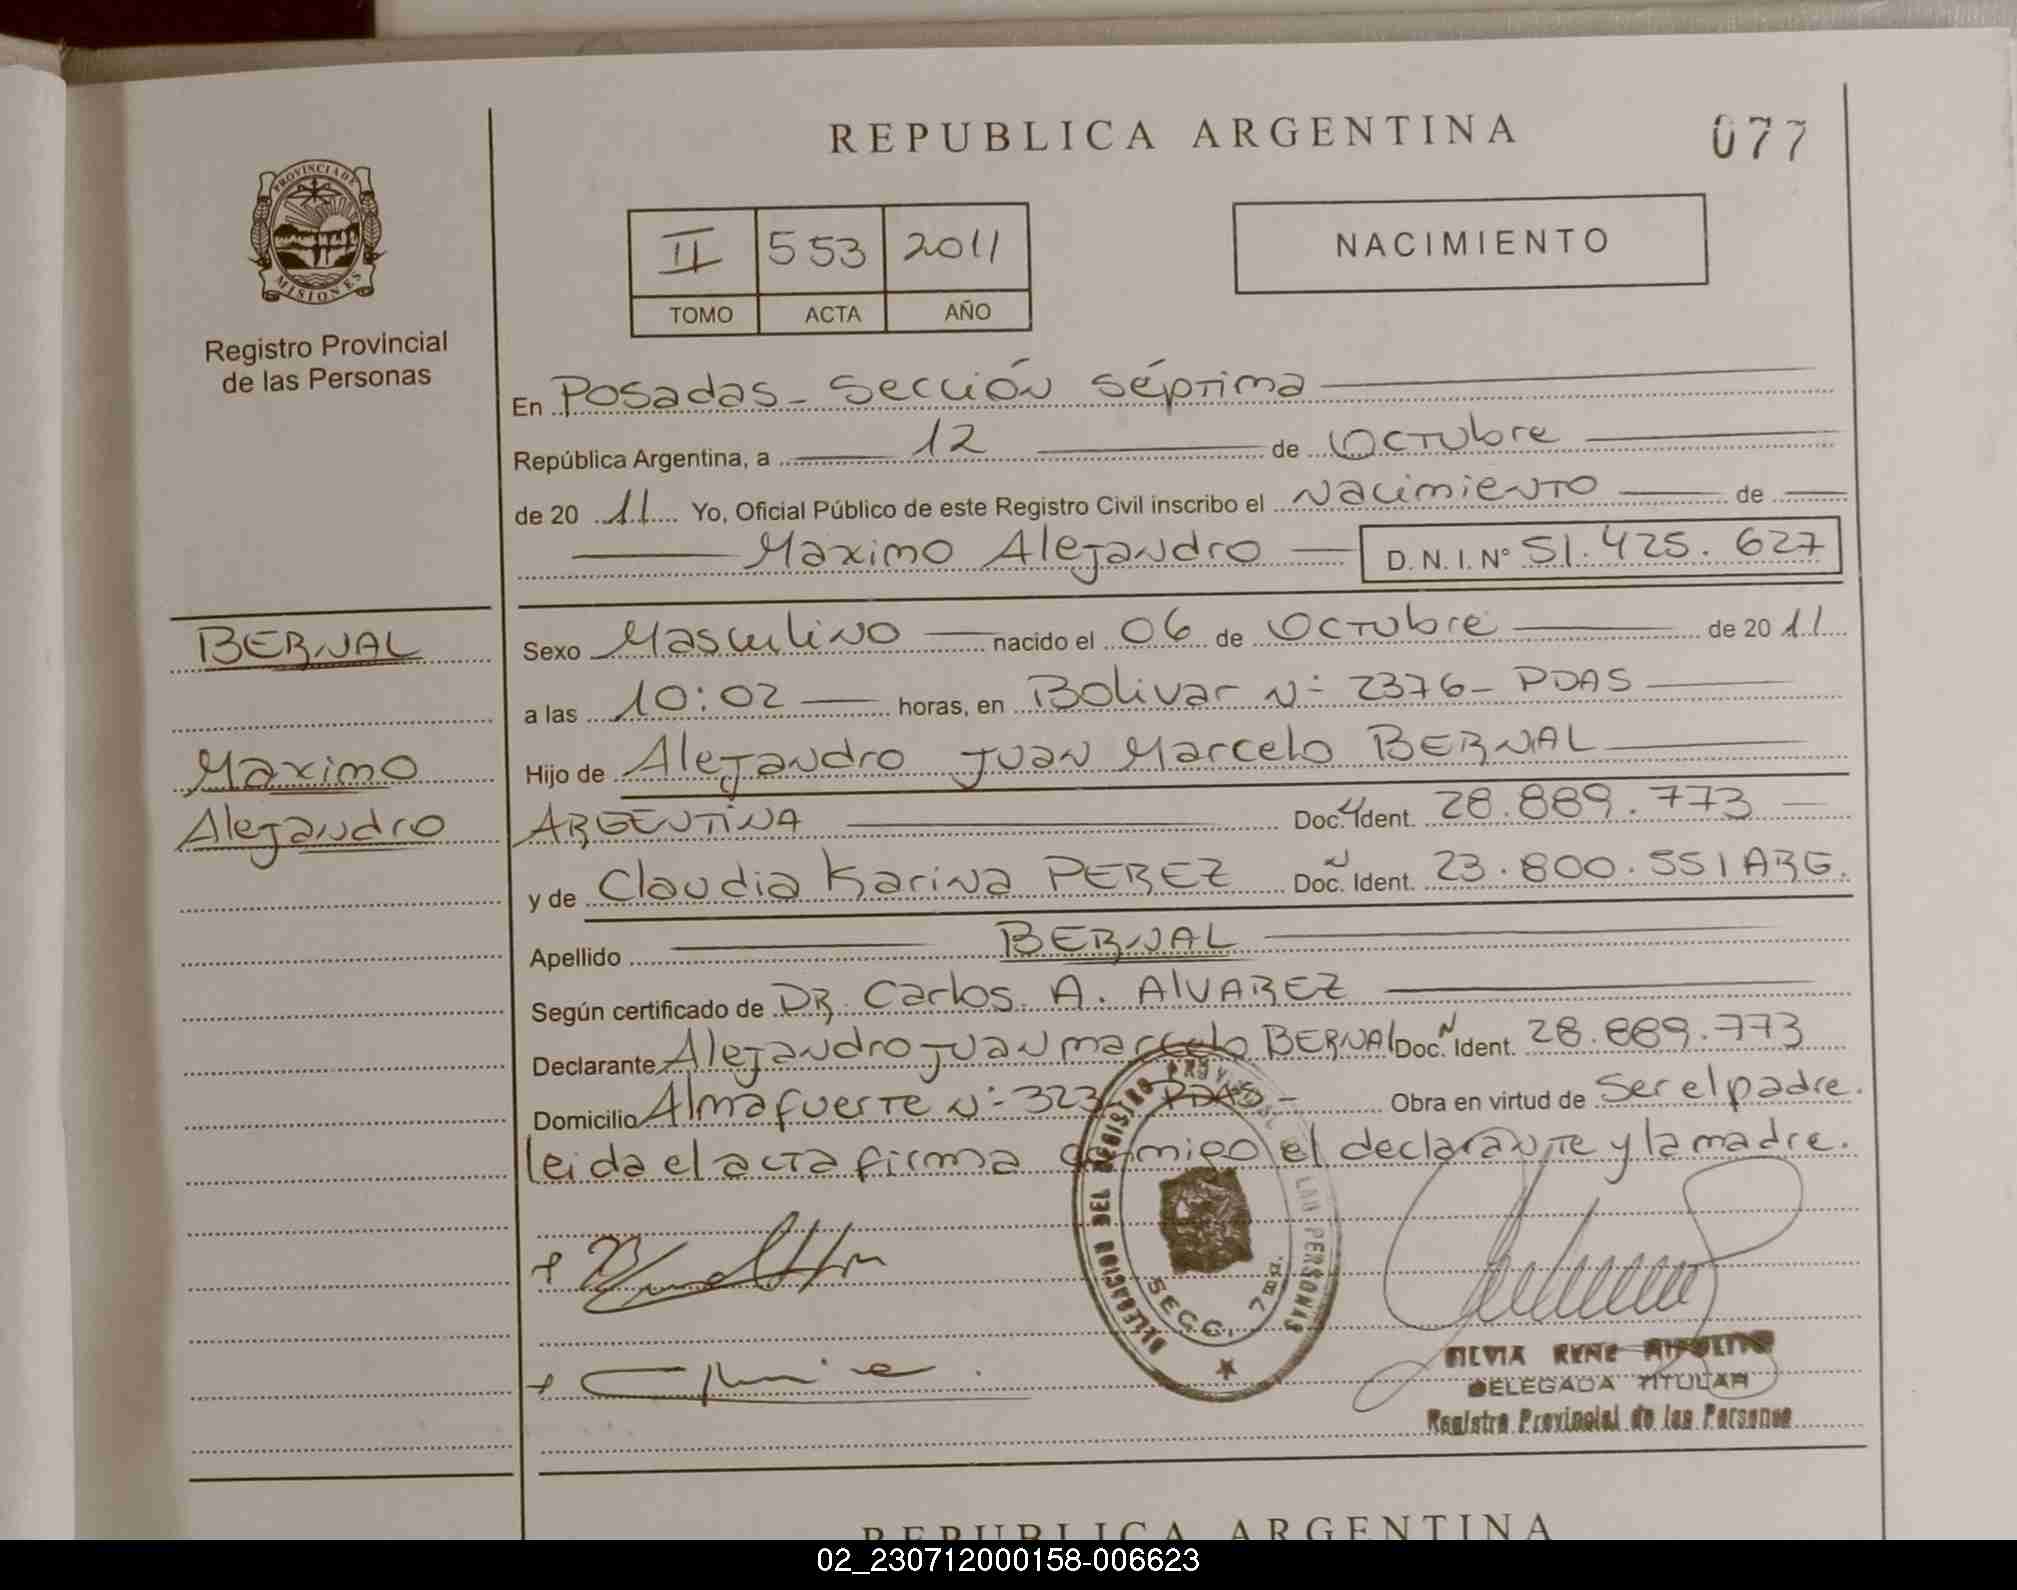 REPUBLICA ARGENTINA
077
PROVINCIA DE
MISIONES
Registro Provincial
de las Personas
II 553 2011
TOMO ACTA AÑO
NACIMIENTO
En Posadas - Sección Séptima
República Argentina, a 12 de Octubre
de 20 11 Yo, Oficial Público de este Registro Civil inscribo el Nacimiento de
Maximo Alejandro D. N. I. N° 51.425.627
BERNAL
Maximo
Alejandro
Sexo Masculino nacido el 06 de Octubre de 20 11
a las 10:02 horas, en Bolivar N° 2376 - PDAS
Hijo de Alejandro Juan Marcelo BERNAL
ARGENTINA Doc. Ident. 28.889.773
y de Claudia Karina PEREZ Doc. Ident. 23.800.551 ARG.
Apellido BERNAL
Según certificado de DR. Carlos A. ALVAREZ
Declarante Alejandro Juan Marcelo BERNAL Doc. Ident. 28.889.773
Domicilio Almafuerte N° 323 - PDAS - Obra en virtud de Ser el padre.
leida el acta firma conmigo el declarante y la madre.
DELEGACION DEL REGISTRO PROVINCIAL DE LAS PERSONAS
SECC. 7
DELEGADA TITULAR
Registro Provincial de las Personas
REPUBLICA ARGENTINA
02_230712000158-006623